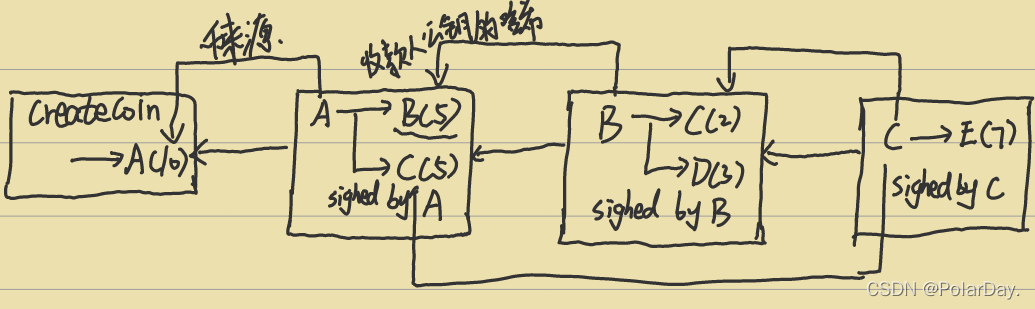 币来源.
收款人公钥的哈希
CreateCoin
A(10)
A B(5)
C(5)
sighed by A
B C(2)
D(3)
sighed by B
C E(7)
sighed by C
CSDN @PolarDay.